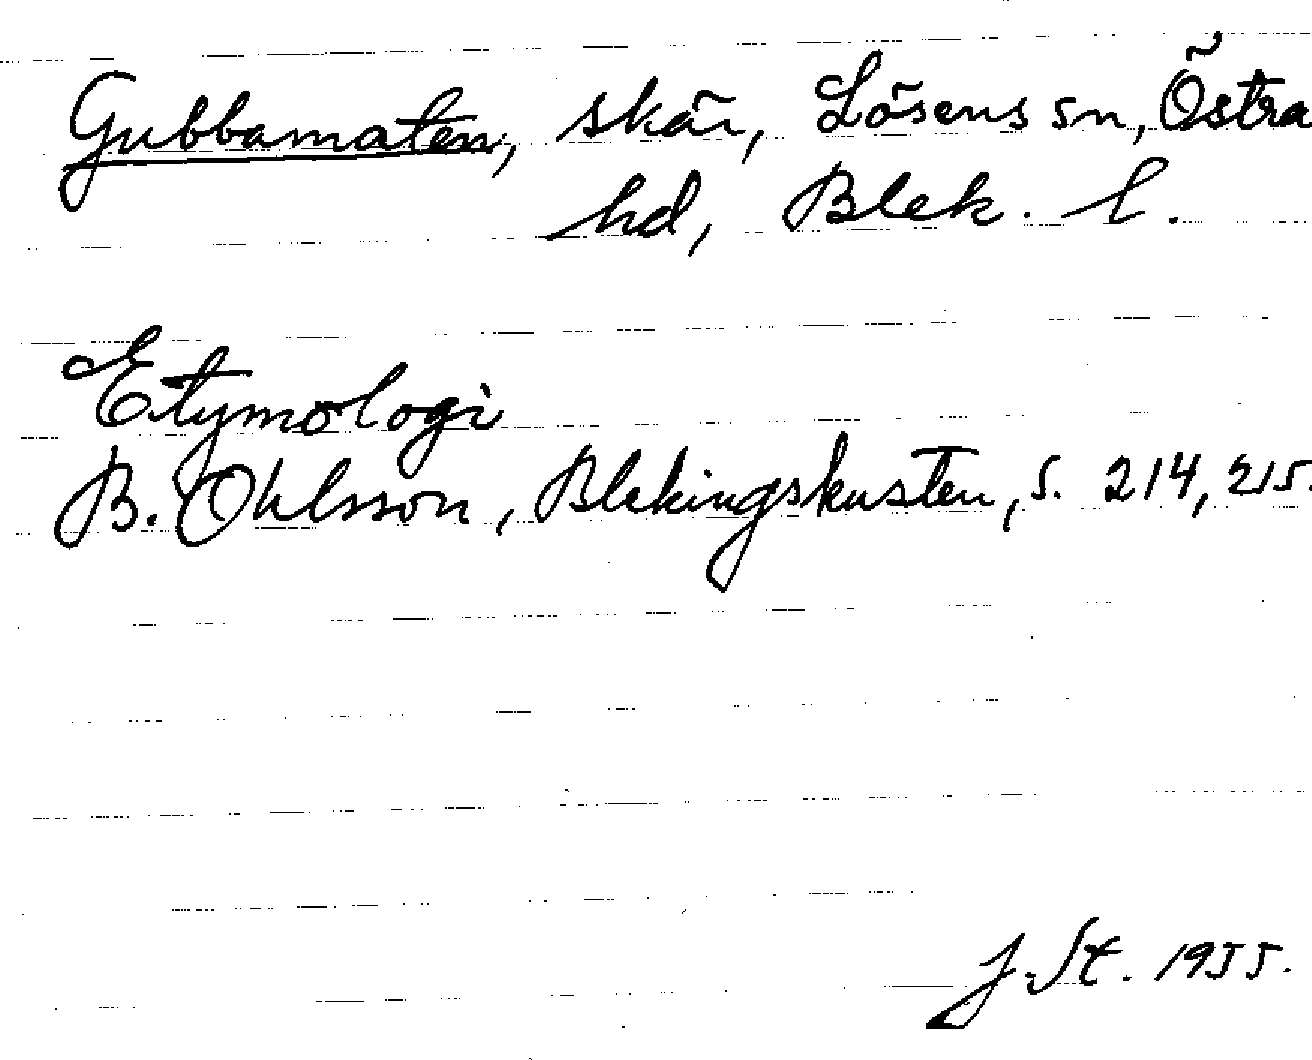 Gubbamaten, skär, Lösens sn, Östra
hd, Blek. l.
Etymologi
B. Ohlsson, Blekingskusten, s. 214, 215.
J. St. 1955.